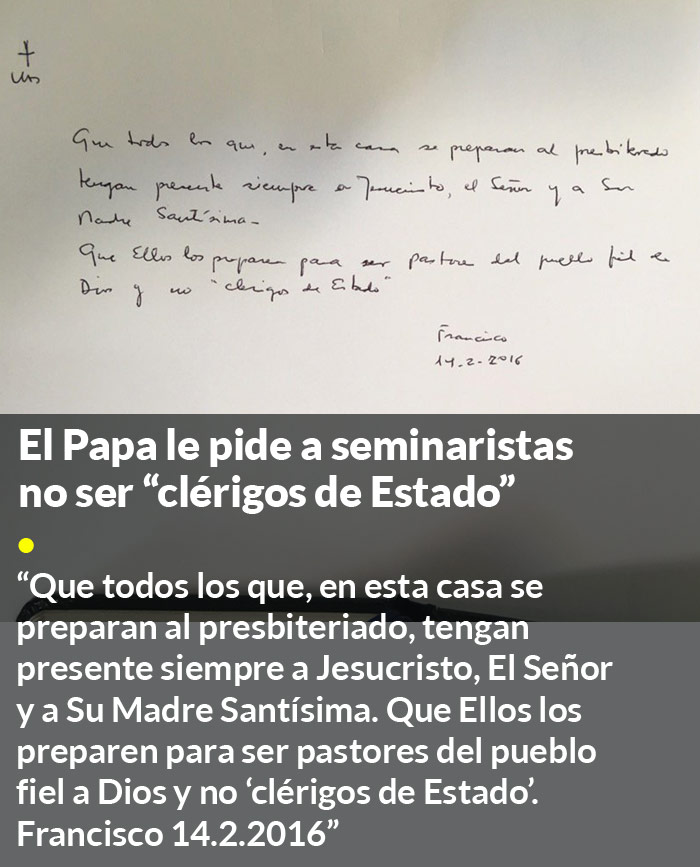 Que todos los que, en esta casa se preparan al presbiterado
tengan presente siempre a Jesucristo, el Señor y a Su
Madre Santísima -
Que Ellos los preparen para ser pastores del pueblo fiel de
Dios y no "clérigos de Estado"
Francisco
14-2-2016
El Papa le pide a seminaristas
no ser “clérigos de Estado”
“Que todos los que, en esta casa se
preparan al presbiteriado, tengan
presente siempre a Jesucristo, El Señor
y a Su Madre Santísima. Que Ellos los
preparen para ser pastores del pueblo
fiel a Dios y no ‘clérigos de Estado’.
Francisco 14.2.2016”